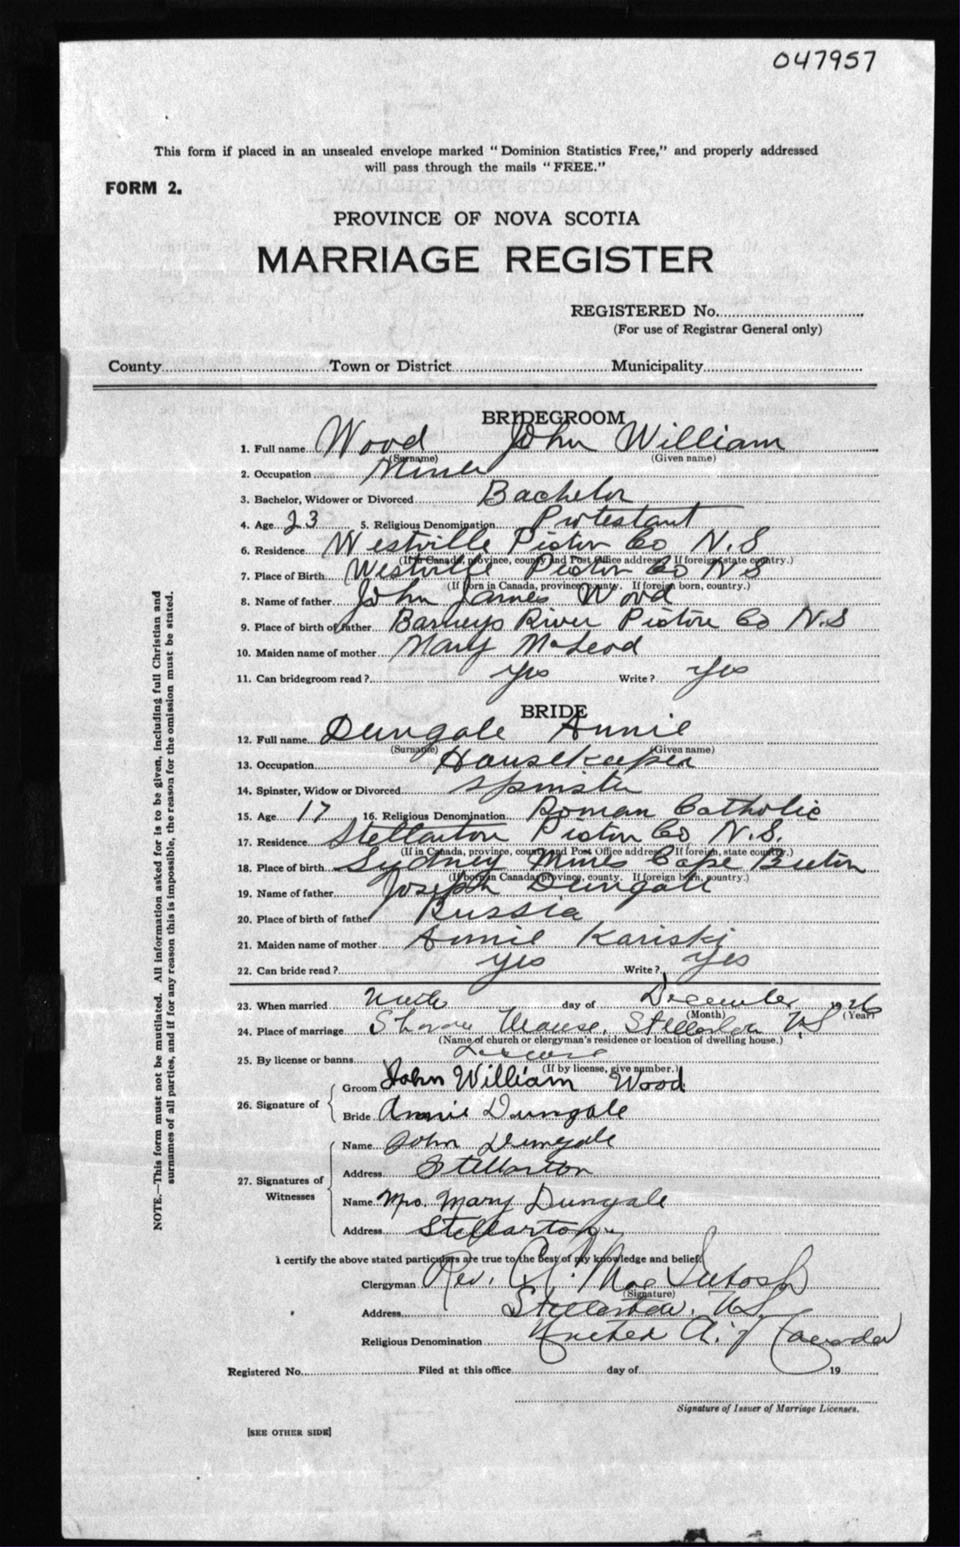 047957
This form if placed in an unsealed envelope marked "Dominion Statistics Free," and properly addressed
will pass through the mails "FREE."
FORM 2.
PROVINCE OF NOVA SCOTIA
MARRIAGE REGISTER
REGISTERED No.
(For use of Registrar General only)
County Town or District Municipality
BRIDEGROOM
1. Full name Wood John William
(Surname) (Given name)
2. Occupation Miner
3. Bachelor, Widower or Divorced Bachelor
4. Age 23 5. Religious Denomination Protestant
6. Residence Westville Pictou Co N.S
(If in Canada, province, county and Post Office address. If foreign, state country.)
7. Place of Birth Westville Pictou Co N S
(If born in Canada, province, county. If foreign born, country.)
8. Name of father John James Wood
9. Place of birth of father Barneys River Pictou Co N.S
10. Maiden name of mother Mary McLeod
11. Can bridegroom read? Yes Write? Yes
BRIDE
12. Full name Dungale Annie
(Surname) (Given name)
13. Occupation Housekeeper
14. Spinster, Widow or Divorced Spinster
15. Age 17 16. Religious Denomination Roman Catholic
17. Residence Stellarton Pictou Co N.S.
(If in Canada, province, county and Post Office address. If foreign, state country.)
18. Place of birth Sydney Mines Cape Breton
(If born in Canada, province, county. If foreign born, country.)
19. Name of father Joseph Dungale
20. Place of birth of father Russia
21. Maiden name of mother Annie Kariski
22. Can bride read? Yes Write? Yes
23. When married day of December 1926
(Month) (Year)
24. Place of marriage Manse, Stellarton NS
(Name of church or clergyman's residence or location of dwelling house.)
25. By license or banns License
(If by license, give number.)
26. Signature of Groom John William Wood
Bride Annie Dungale
27. Signatures of Witnesses Name John Dungale
Address Stellarton
Name Mrs. Mary Dungale
Address Stellarton
I certify the above stated particulars are true to the best of my knowledge and belief.
Clergyman Rev. MacIntosh
(Signature)
Address Stellarton. NS.
Religious Denomination United Canada
Registered No. Filed at this office day of 19
Signature of Issuer of Marriage Licenses.
[SEE OTHER SIDE]
NOTE.—This form must not be mutilated. All information asked for is to be given, including full Christian and
surnames of all parties, and if for any reason this is impossible, the reason for the omission must be stated.